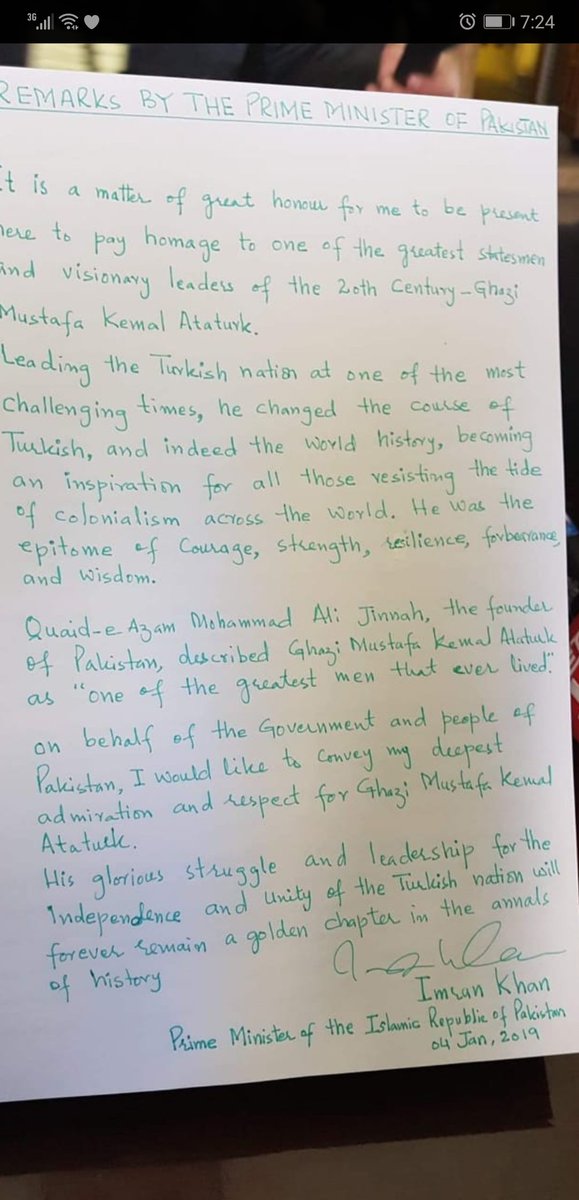 3G 7:24
REMARKS BY THE PRIME MINISTER OF PAKISTAN
It is a matter of great honour for me to be present
here to pay homage to one of the greatest statesmen
and visionary leaders of the 20th Century - Ghazi
Mustafa Kemal Ataturk.
Leading the Turkish nation at one of the most
challenging times, he changed the course of
Turkish, and indeed the world history, becoming
an inspiration for all those resisting the tide
of colonialism across the world. He was the
epitome of Courage, strength, resilience, forbearance,
and wisdom.
Quaid-e Azam Mohammad Ali Jinnah, the founder
of Pakistan, described Ghazi Mustafa Kemal Ataturk
as "one of the greatest men that ever lived."
on behalf of the Government and people of
Pakistan, I would like to convey my deepest
admiration and respect for Ghazi Mustafa Kemal
Ataturk.
His glorious struggle and leadership for the
Independence and Unity of the Turkish nation will
forever remain a golden chapter in the annals
of history
Imran Khan
Prime Minister of the Islamic Republic of Pakistan
04 Jan, 2019